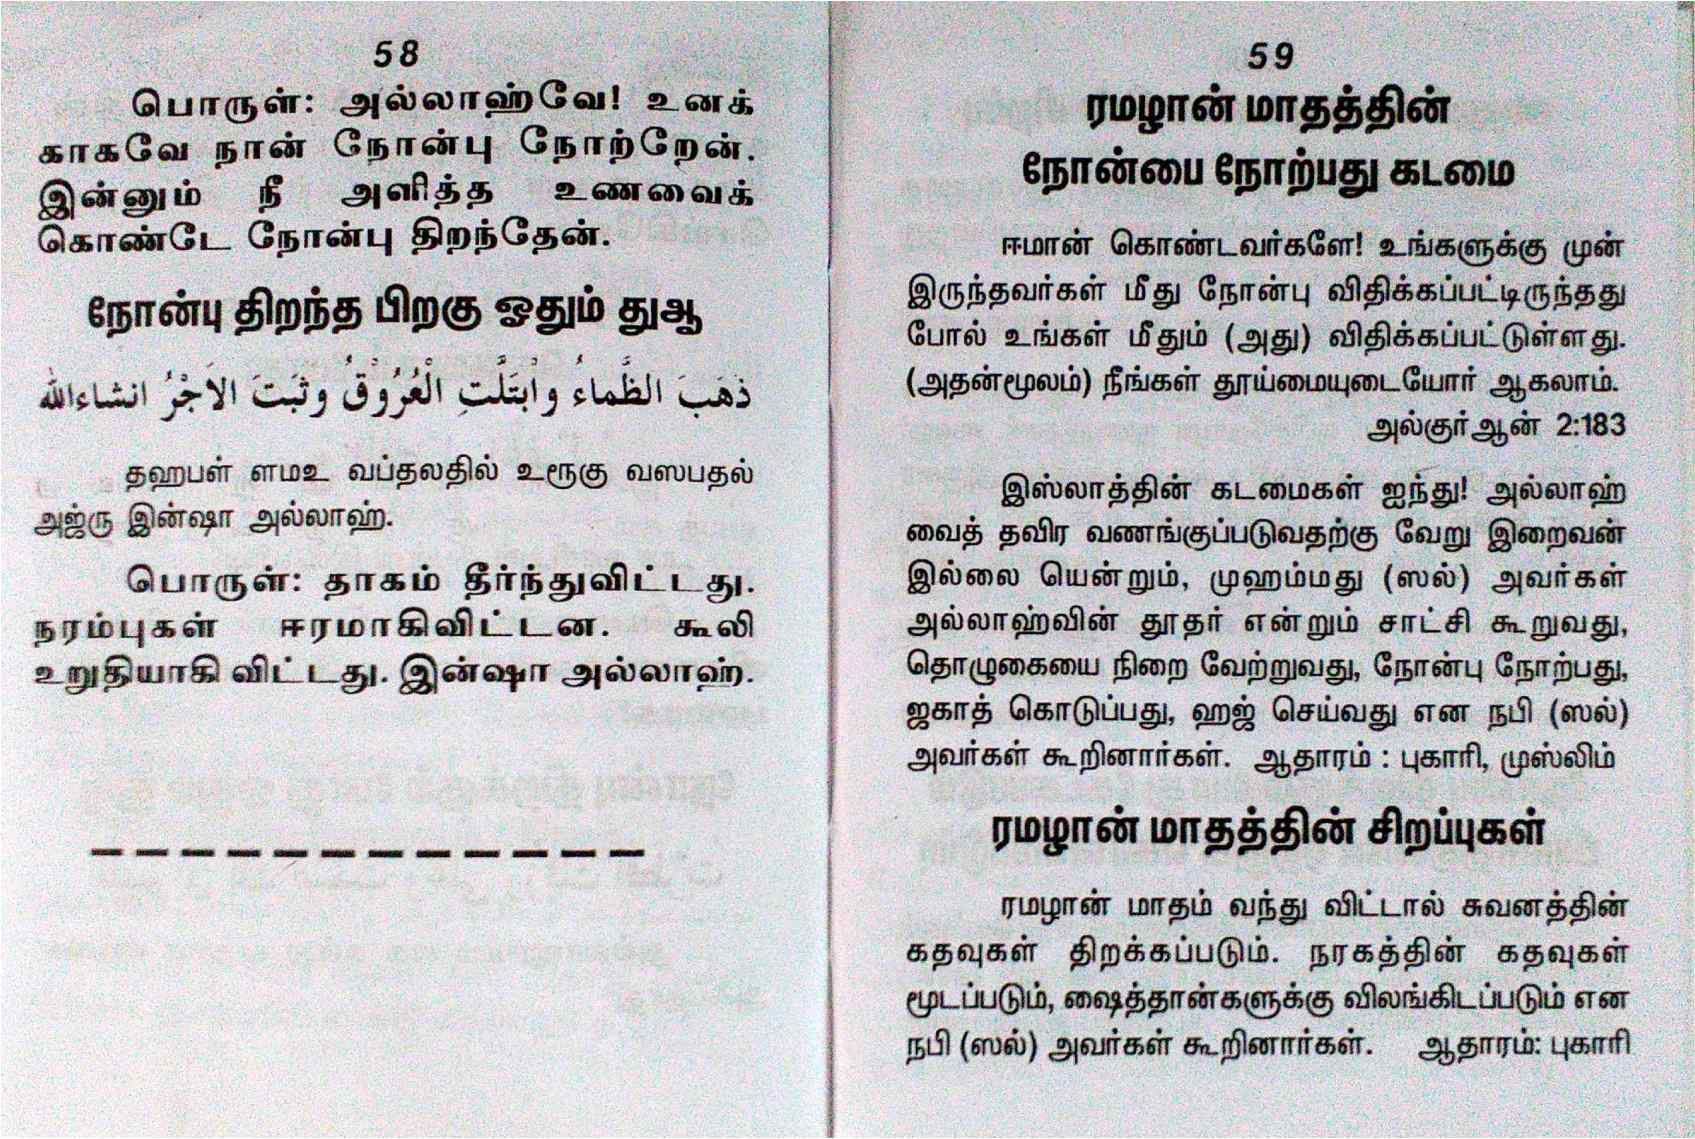 58
பொருள்: அல்லாஹ்வே! உனக்
காகவே நான் நோன்பு நோற்றேன்.
இன்னும் நீ அளித்த உணவைக்
கொண்டே நோன்பு திறந்தேன்.
நோன்பு திறந்த பிறகு ஓதும் துஆ
ذَهَبَ الظَّمَاءُ وَابْتَلَّتِ الْعُرُوْقُ وَثَبَتَ الاَجْرُ انشاءالله
தஹபள் ளமஉ வப்தலதில் உரூகு வஸபதல்
அஜ்ரு இன்ஷா அல்லாஹ்.
பொருள்: தாகம் தீர்ந்துவிட்டது.
நரம்புகள் ஈரமாகிவிட்டன. கூலி
உறுதியாகி விட்டது. இன்ஷா அல்லாஹ்.
59
ரமழான் மாதத்தின்
நோன்பை நோற்பது கடமை
ஈமான் கொண்டவர்களே! உங்களுக்கு முன்
இருந்தவர்கள் மீது நோன்பு விதிக்கப்பட்டிருந்தது
போல் உங்கள் மீதும் (அது) விதிக்கப்பட்டுள்ளது.
(அதன்மூலம்) நீங்கள் தூய்மையுடையோர் ஆகலாம்.
அல்குர்ஆன் 2:183
இஸ்லாத்தின் கடமைகள் ஐந்து! அல்லாஹ்
வைத் தவிர வணங்குப்படுவதற்கு வேறு இறைவன்
இல்லை யென்றும், முஹம்மது (ஸல்) அவர்கள்
அல்லாஹ்வின் தூதர் என்றும் சாட்சி கூறுவது,
தொழுகையை நிறை வேற்றுவது, நோன்பு நோற்பது,
ஜகாத் கொடுப்பது, ஹஜ் செய்வது என நபி (ஸல்)
அவர்கள் கூறினார்கள். ஆதாரம் : புகாரி, முஸ்லிம்
ரமழான் மாதத்தின் சிறப்புகள்
ரமழான் மாதம் வந்து விட்டால் சுவனத்தின்
கதவுகள் திறக்கப்படும். நரகத்தின் கதவுகள்
மூடப்படும், ஷைத்தான்களுக்கு விலங்கிடப்படும் என
நபி (ஸல்) அவர்கள் கூறினார்கள். ஆதாரம்: புகாரி